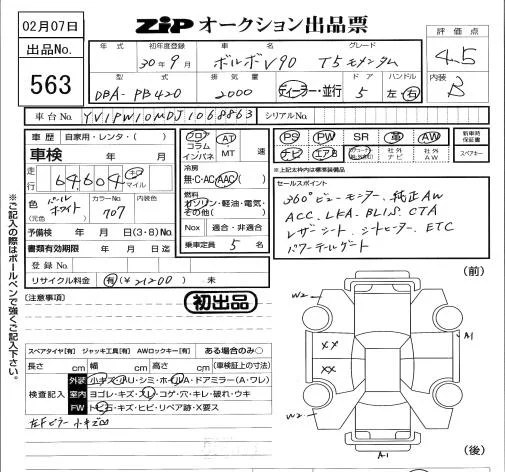 02月07日
ZIP オークション出品票
出品No.
563
年式 初年度登録 車名 グレード
30年9月 ボルボV90 T5モメンタム
型式 排気量 ドア ハンドル
DBA-PB420 2000 ディーラー・並行 5 左・右
評価点
4.5
内装
B
車台No. YV1PW10MDJ1068863 シリアルNo.
車歴 自家用・レンタ・( )
車検 年 月
走行 64604 キロ マイル
色 パールホワイト (元色) カラーNo. 707 内装色
予備検 年 月 日(3・8)No.
書類有効期限 年 月 日迄
登録No.
リサイクル料金 有(¥21200) 未
フロア コラム インパネ AT・MT 速
冷房
無・C・AC・AAC( )
燃料
ガソリン・軽油・電気・その他( )
Nox 適合・非適合
乗車定員 5 名
PS PW SR 革 AW 新車時保証書
ナビ エアB 社外ナビ 社外AW スペアキー
※上記太枠内は標準装備品
セールスポイント
360°ビューモニター、純正AW
ACC、LKA、BLIS、CTA
レザーシート、シートヒーター、ETC
パワーテールゲート
※ご記入の際はボールペンで強くご記入下さい。
(注意事項)
初出品
スペアタイヤ[有] ジャッキ工具[有] AWロックキー[有] ある場合のみ○
長さ cm 幅 cm 高さ cm (車検証上の寸法)
検査記入
外装 小キズ・小AU・シミ・ホイルA・ドアミラー(A・ワレ)
室内 ヨゴレ・キズ・スレ・コゲ・穴・キレ・破れ・ウキ
FW トビ石・キズ・ヒビ・リペア跡・X要ス
左Fピラー小キズ
(前)
W2
A1
XX
XX
W2
A1
(後)